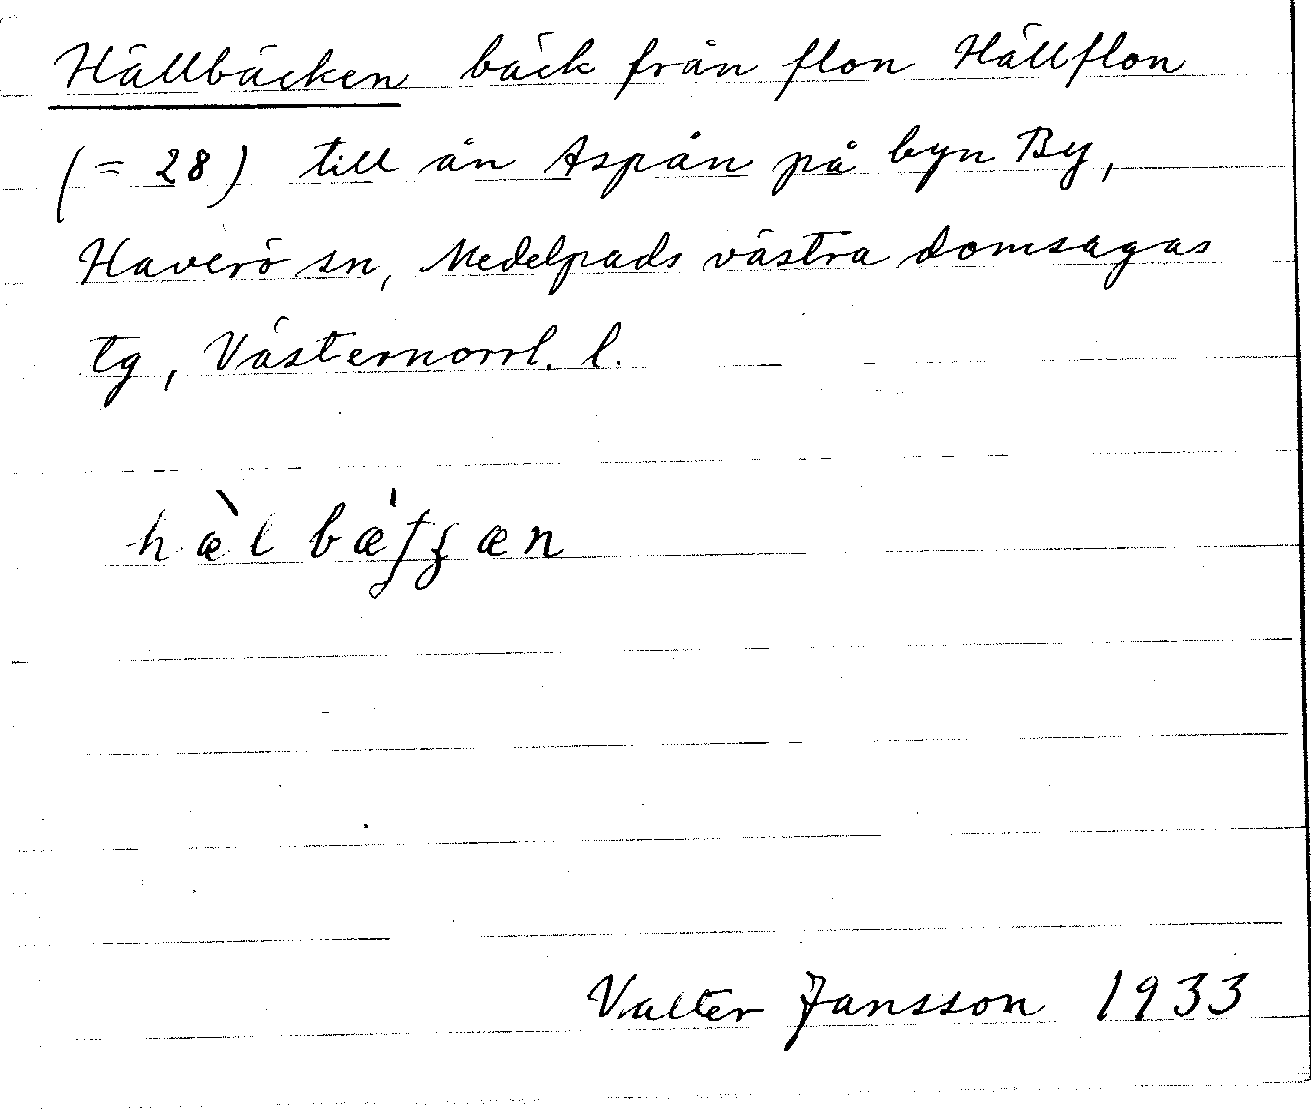 Hällbäcken bäck från flon Hällflon
(= 28) till ån Aspån på byn By,
Haverö sn, Medelpads västra domsagas
tg, Västernorrl. l.
hæ̀l bǽʃʒæn
Valter Jansson 1933